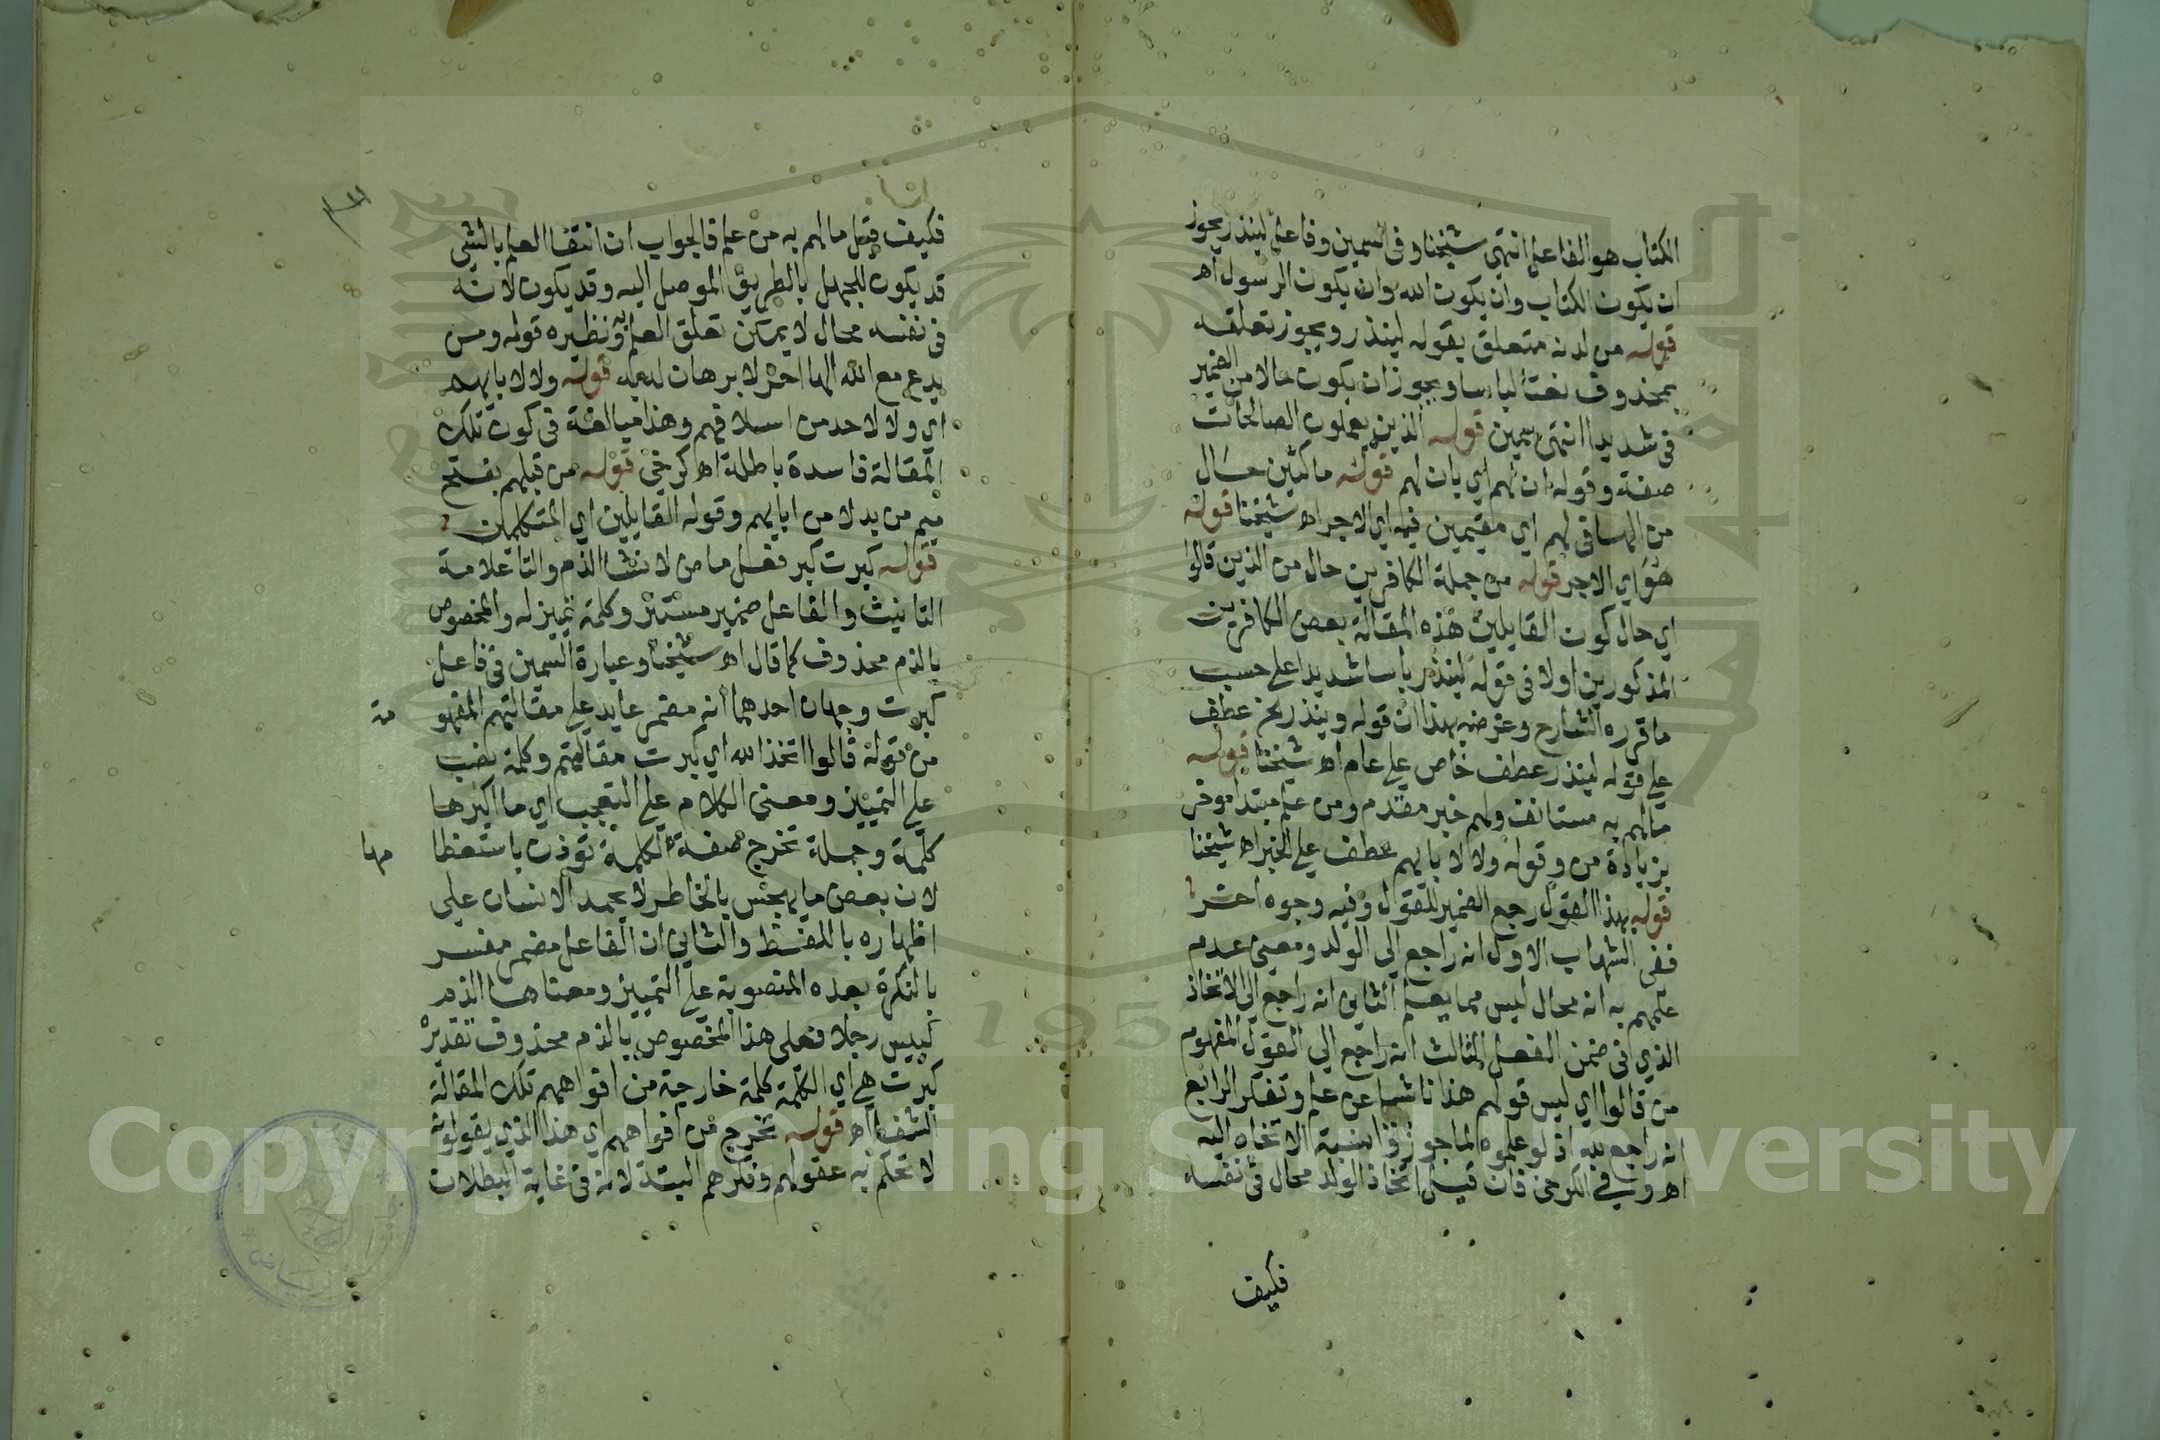 الكتاب هو الفاعل انتهى شيخنا وفى السمين وفاعل لينذر يجوز
ان يكون الكتاب وان يكون الله وان يكون الرسول اه
قوله من لدنه متعلق بقوله لينذر ويجوز تعلقه
بمحذوف نعتا لباسا ويجوز ان يكون حالا من الضمير
فى شديدا انتهى سمين قوله الذين يعملون الصالحات
صفة وقوله ان لهم اي بان لهم قوله ماكثين حال
من الها فى لهم اي مقيمين فيه اي الاجر اه شيخنا قوله
هو اي الاجر قوله من جملة الكافرين حال من الذين قالوا
اي حال كون القايلين هذه المقالة بعض الكافرين
المذكورين اولا فى قوله لينذر باسا شديدا على حسب
ما قرره الشارح وغرضه بهذا ان قوله وينذر الخ عطف
على قوله لينذر عطف خاص على عام اه شيخنا قوله
مالهم به مستانف ولهم خبر مقدم ومن علم مبتدا موخر
بزيادة من وقوله ولا لابايهم عطف على الخبر اه شيخنا
قوله بهذا القول رجع الضمير للقول وفيه وجوه اخر
ففى الشهاب الاول انه راجع الى الولد ومعنى عدم
علمهم به انه محال ليس مما يعلم الثاني انه راجع الى الاتخاذ
الذي فى ضمن الفعل الثالث انه راجع الى القول المفهوم
من قالوا اي ليس قولهم هذا ناشيا عن علم وتفكر الرابع
انه راجع لله اذ لو علموه لما جوزوا نسبة الاتخاذ اليه
اه وفي الكرخى فان قيل اتخاذ الولد محال فى نفسه
فكيف
فكيف قيل مالهم به من علم فالجواب ان انتفا العلم بالشي
قد يكون للجهل بالطريق الموصل اليه وقد يكون لانه
فى نفسه محال لا يمكن تعلق العلم به ونظيره قوله ومن
يدع مع الله الها اخر لا برهان له به قوله ولا لابايهم
اي ولا لاحد من اسلافهم وهذا مبالغة فى كون تلك
المقالة فاسدة باطلة اه كرخي قوله من قبلهم بفتح
ميم من بدلا من ابايهم وقوله القايلين اي المتكلمين
قوله كبرت كبر فعل ماض لانشا الذم والتا علامة
التانيث والفاعل ضمير مستتر وكلمة تمييز له والمخصوص
بالذم محذوف كما قال اه شيخنا وعبارة السمين فى فاعل
كبرت وجهان احدهما انه مضمر عايد على مقالتهم المفهو
مة
من قوله قالوا اتخذ الله اي كبرت مقالتهم وكلمة نصب
على التمييز ومعنى الكلام على التعجب اي ما اكبرها
كلمة وجملة تخرج صفة لكلمة توذن باستعظا
مها
لان بعض ما يهجس بالخاطر لا يجمد الانسان على
اظهاره باللفظ والثاني ان الفاعل مضمر مفسر
بالنكرة بعده المنصوبة على التمييز ومعناها الذم
كبيس رجلا فعلى هذا المخصوص بالذم محذوف تقديره
كبرت هي اي الكلمة كلمة خارجة من افواههم تلك المقالة
الشنعا اه قوله تخرج من افواههم اي هذا الذي يقولونه
لا تحكم به عقولهم وفكرهم البتة لانه فى غاية البطلان
Copyright © King Saud University
1957